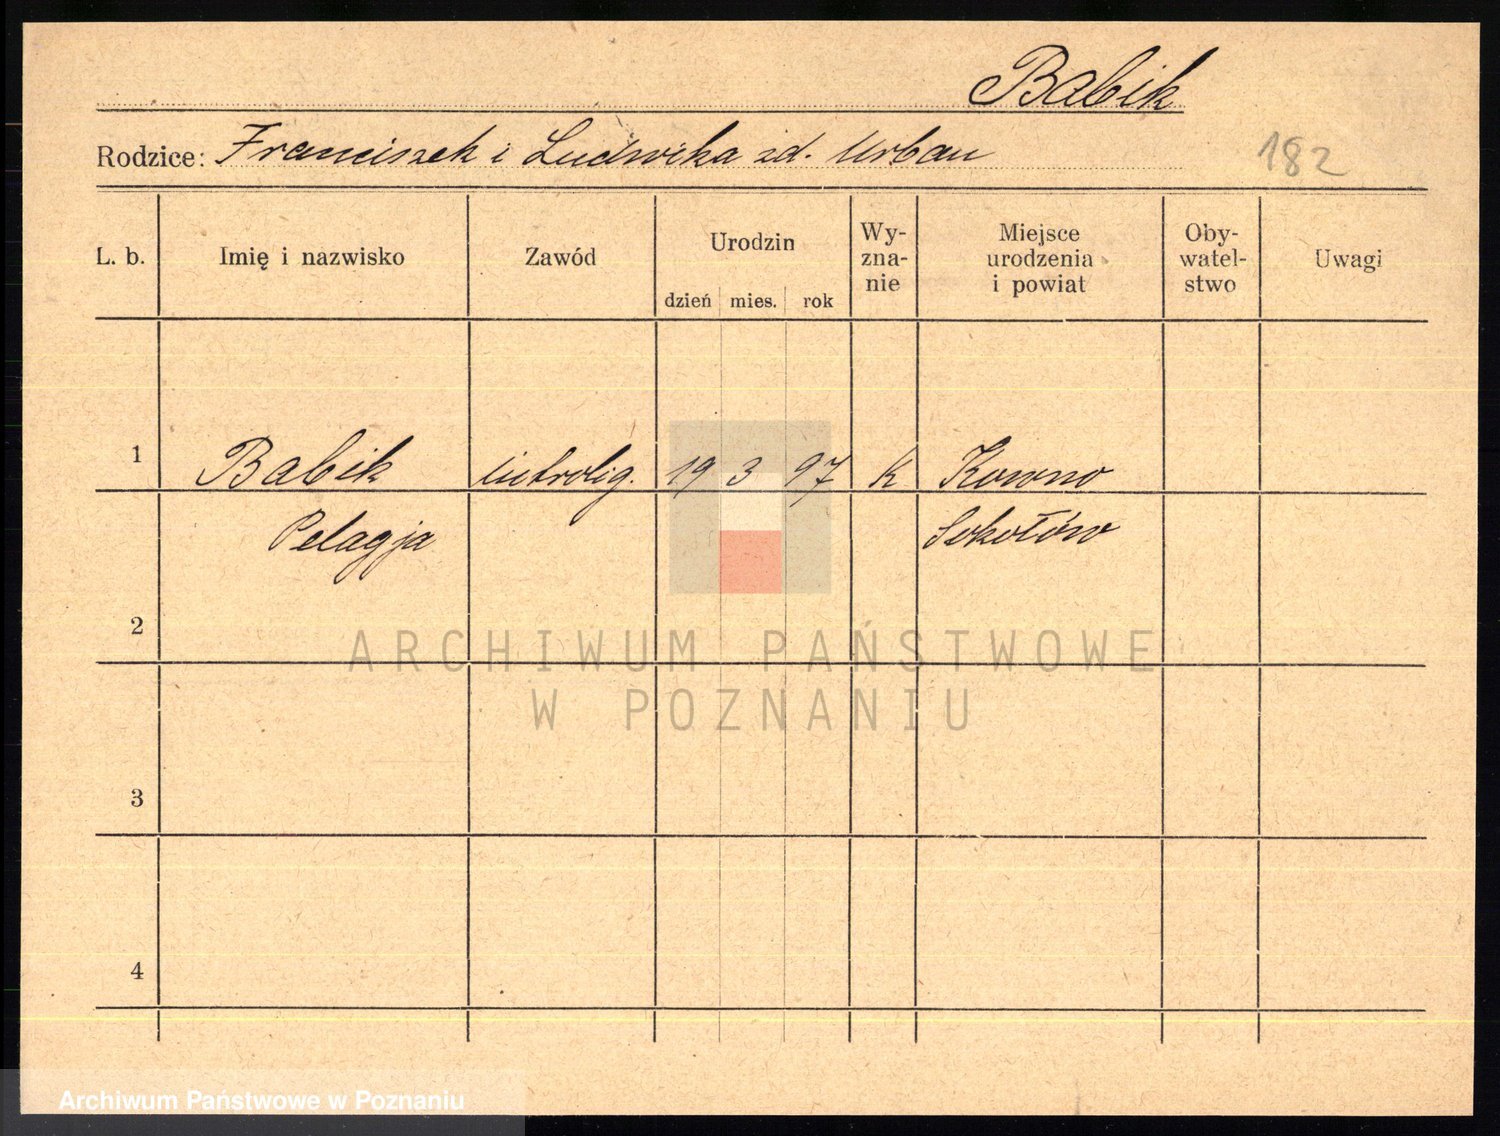 Babik
Rodzice: Franciszek i Ludwika zd. Urban
182
L. b. Imię i nazwisko Zawód Urodzin Wy-zna-nie Miejsce urodzenia i powiat Oby-watel-stwo Uwagi
dzień mies. rok
1 Babik introlig. 19 3 97 k Kowno
Pelagja Sokołów
2
ARCHIWUM PAŃSTWOWE
W POZNANIU
3
4
Archiwum Państwowe w Poznaniu